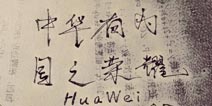 中华有为
国之荣耀
HuaWei